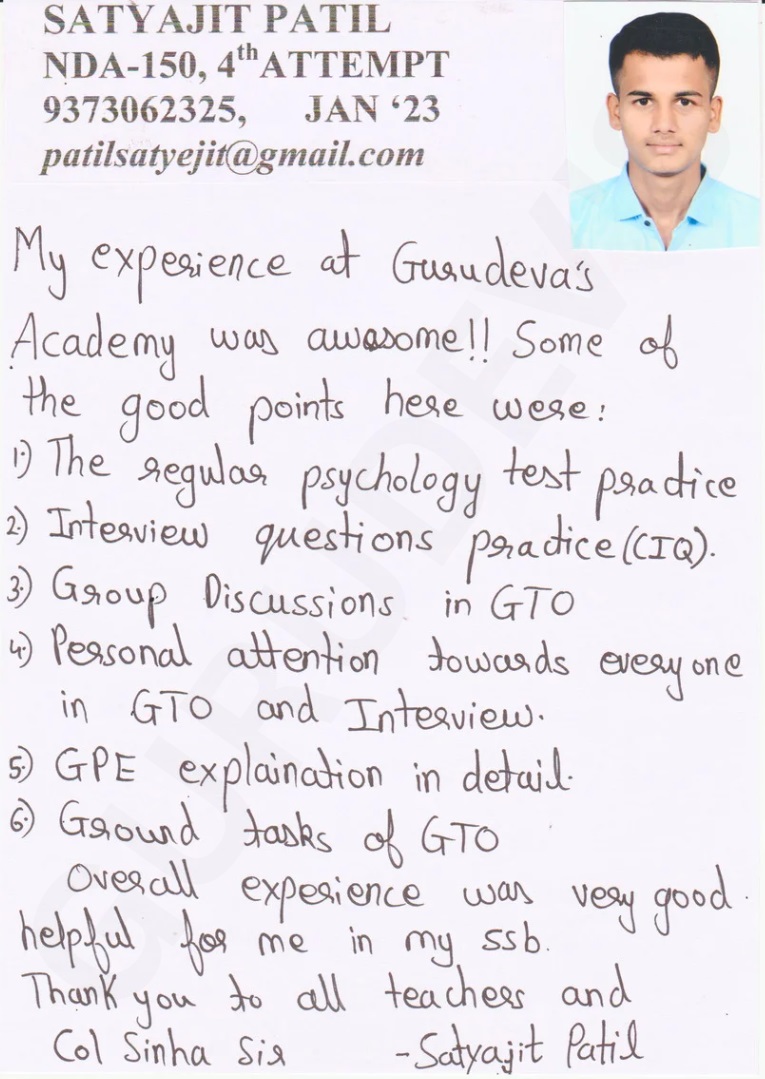 SATYAJIT PATIL
NDA-150, 4th ATTEMPT
9373062325, JAN ‘23
patilsatyejit@gmail.com
My experience at Gurudeva's
Academy was awasome!! Some of
the good points here were:
1) The regular psychology test practice
2) Interview questions practice (CIQ).
3) Group Discussions in GTO
4) Personal attention towards everyone
in GTO and Interview.
5) GPE explaination in detail.
6) Ground tasks of GTO
Overall experience was very good.
helpful for me in my ssb.
Thank you to all teachers and
Col Sinha Sir -Satyajit Patil